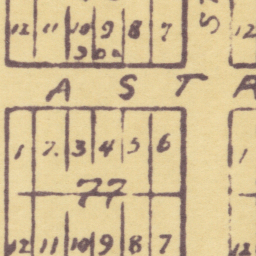 12 11 10 9 8 7
12
A S T
1 2 3 4 5 6
1
77
12 11 10 9 8 7
12